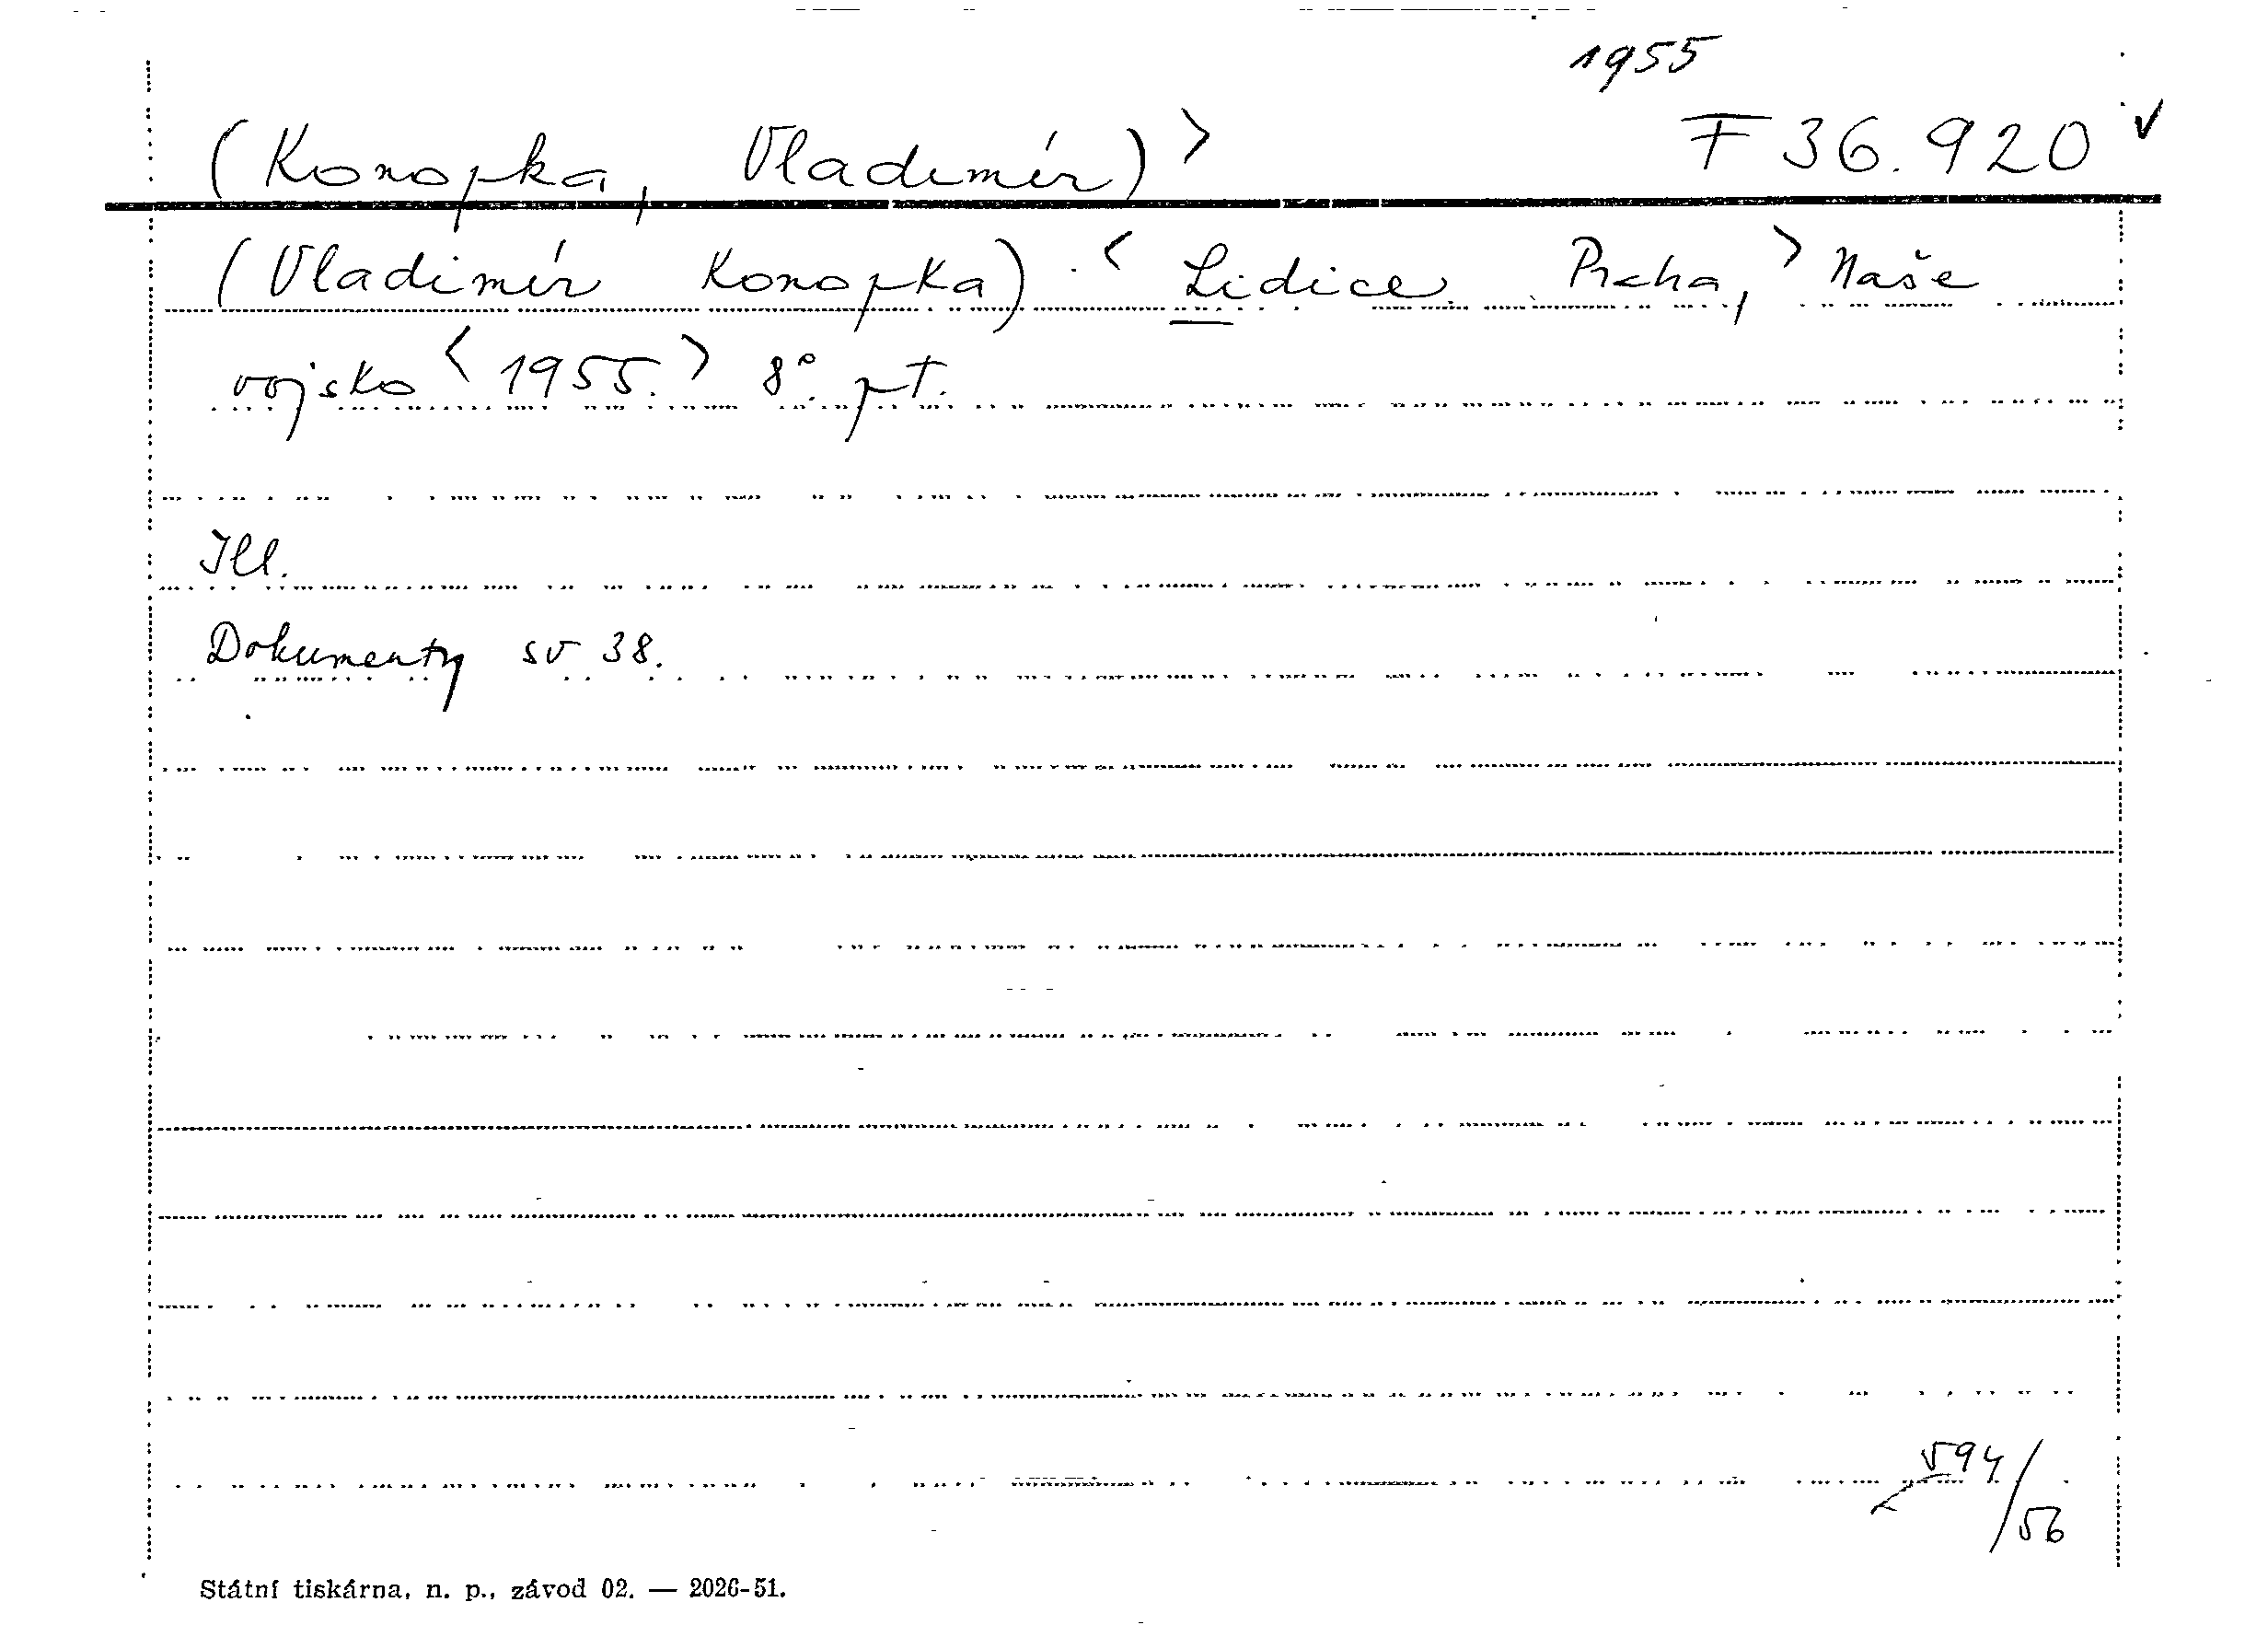 1955
(Konopka, Vladimír)> F 36.920 v
(Vladimír Konopka). <Lidice. Praha,> Naše
vojsko <1955.> 8°. pt.
Ill.
Dokumenty sv 38.
594/56
Státní tiskárna, n. p., závod 02. — 2026-51.